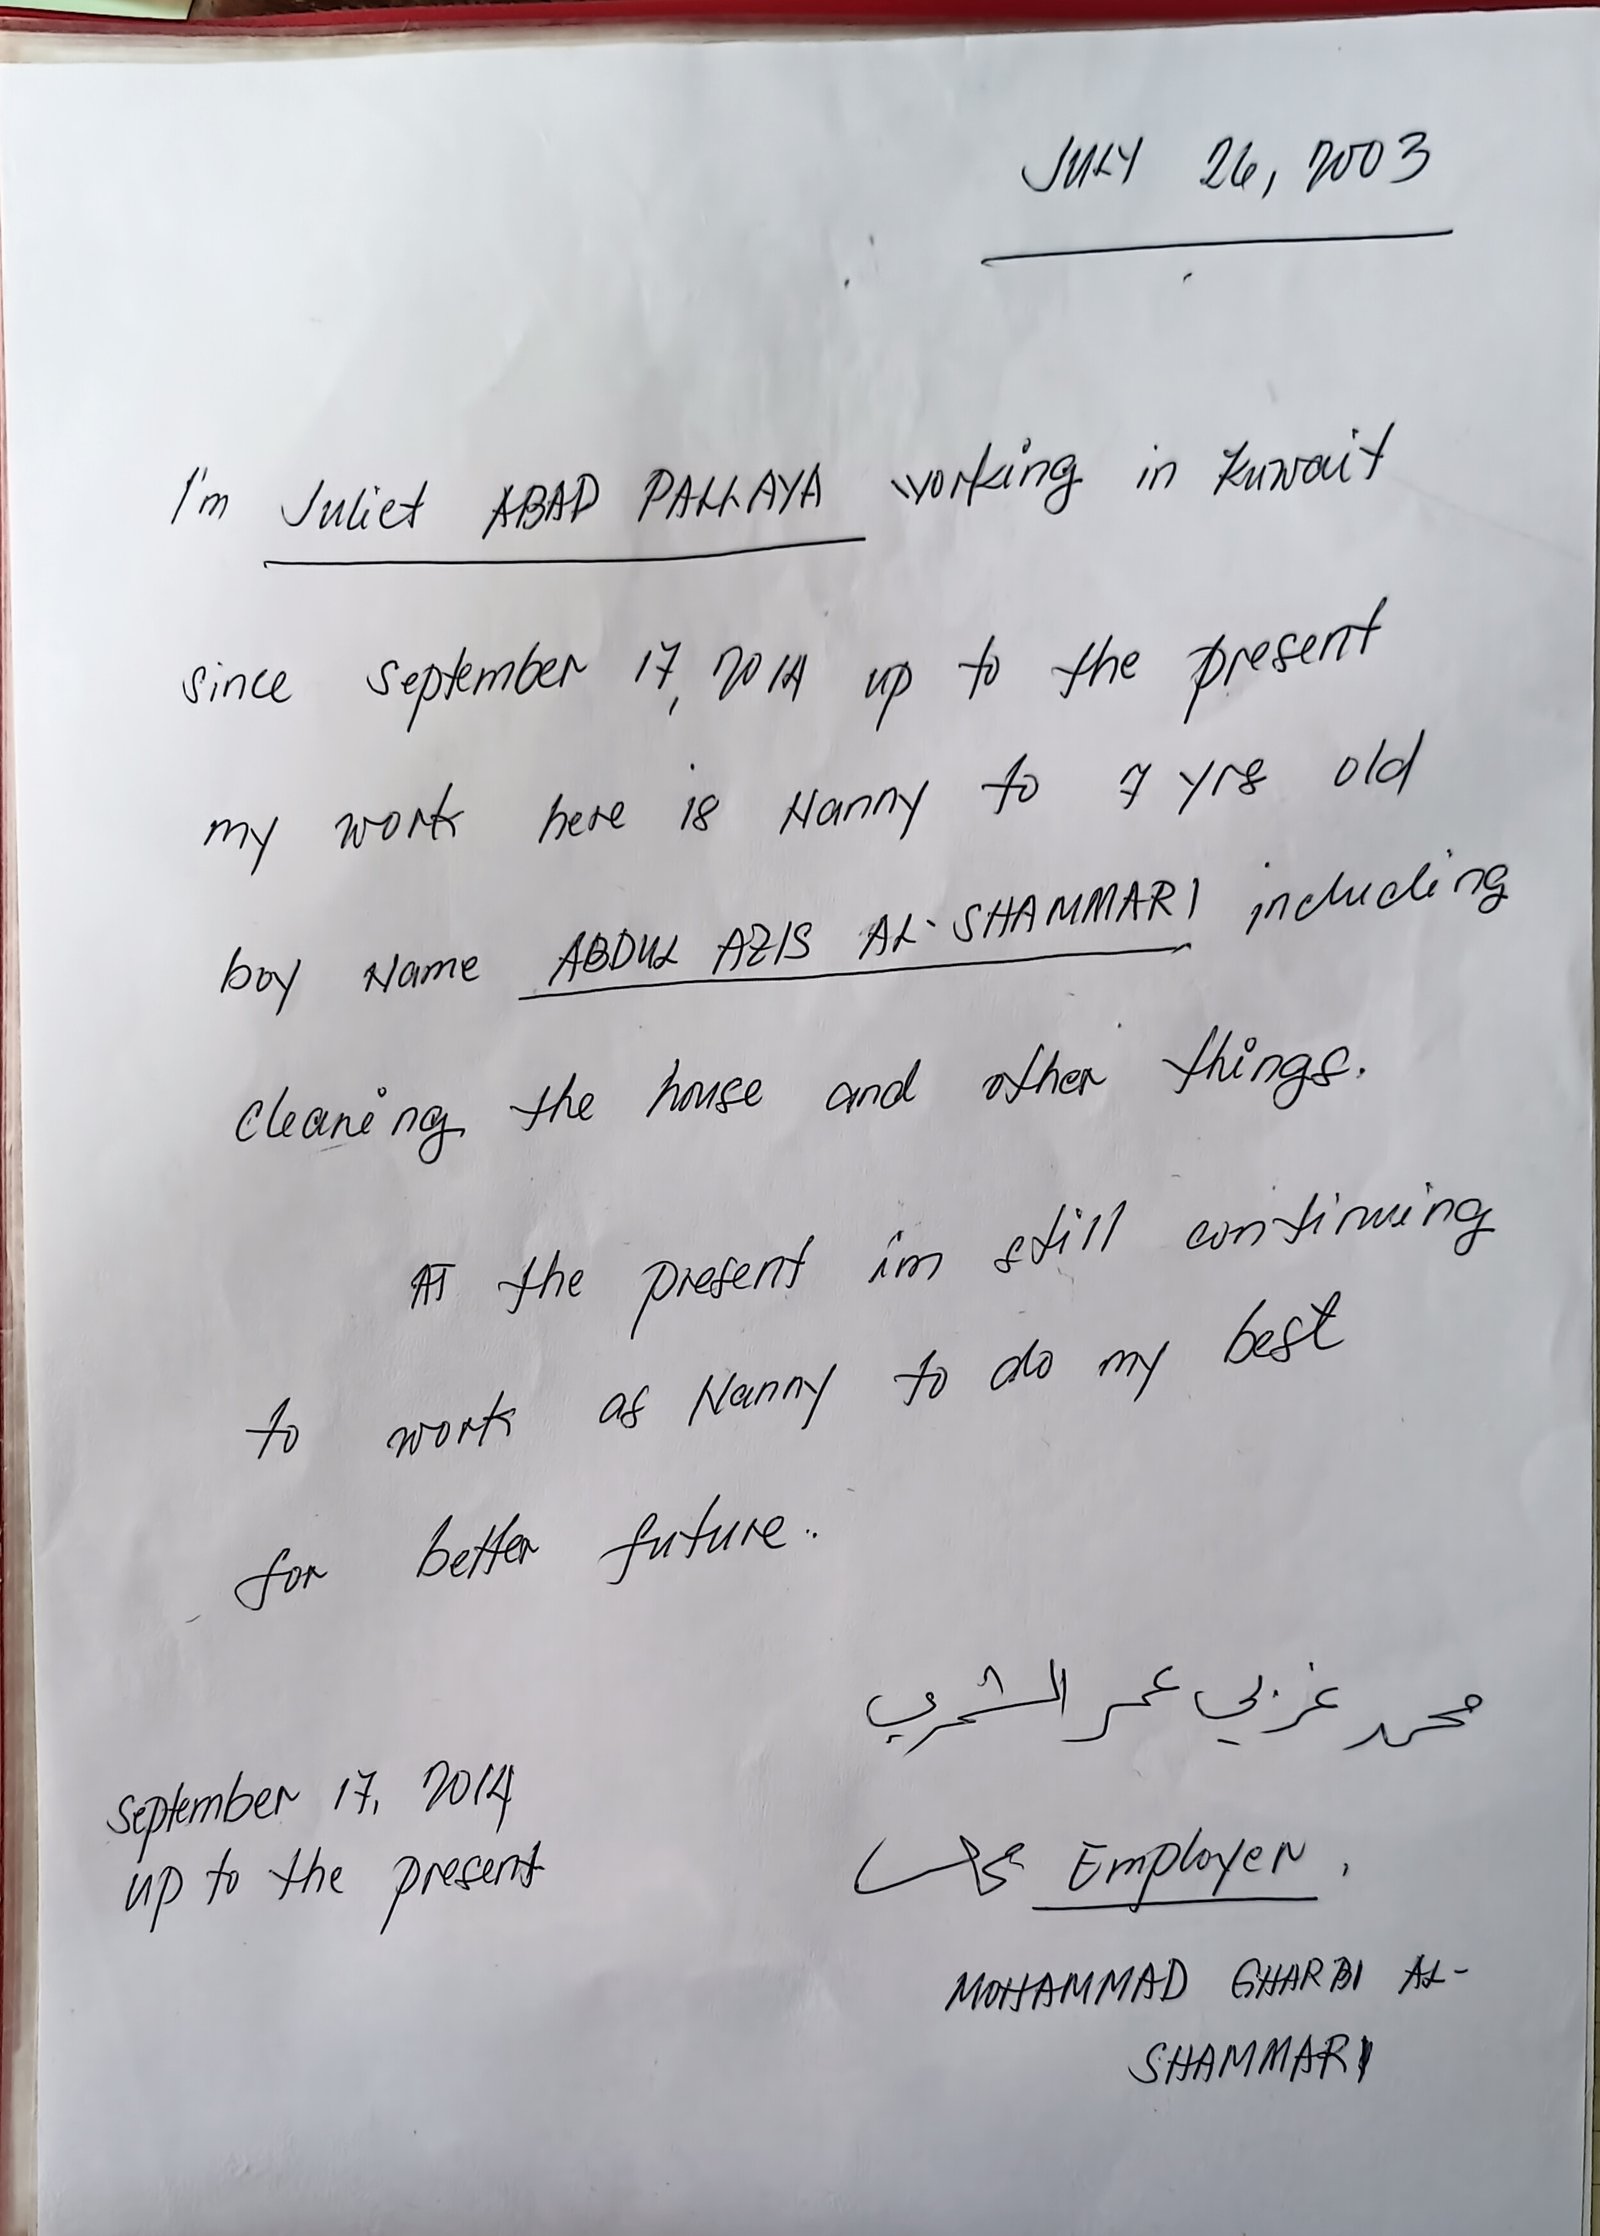 JULY 26, 2003
I'm Juliet ABAD PALLAYA working in Kuwait
since September 17, 2014 up to the present
my work here is Nanny to 7 yrs old
boy Name ABDUL AZIS AL-SHAMMARI including
cleaning the house and other things.
AT the present im still continuing
to work as Nanny to do my best
for better future..
محمد غربي عمر الشمري
September 17, 2014
up to the present
Employer.
MOHAMMAD GHARBI AL-
SHAMMARI